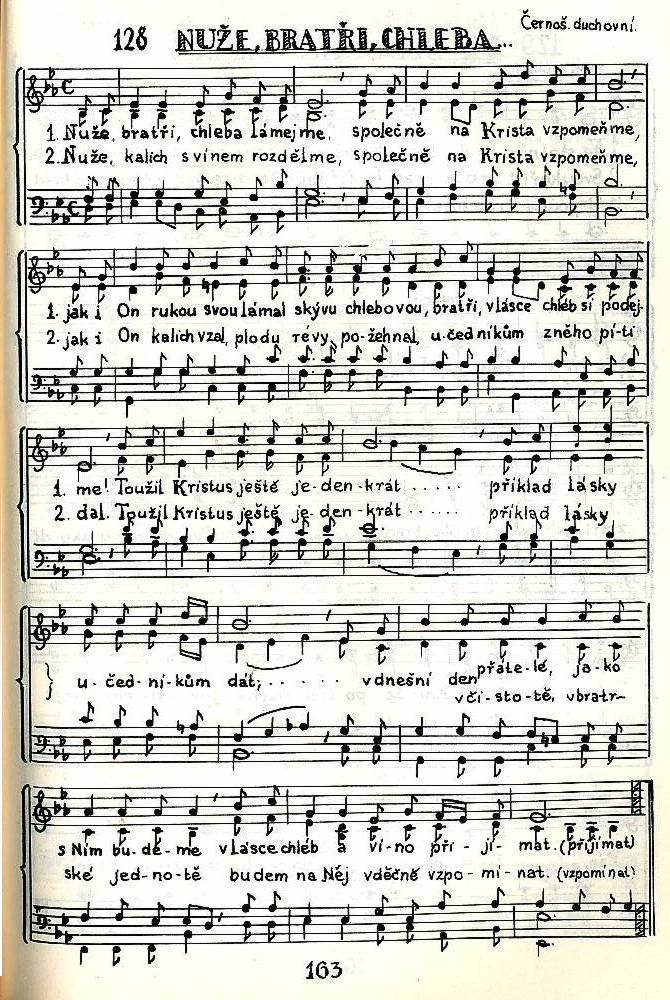 Černoš. duchovní.
128 NUŽE, BRATŘI, CHLEBA...
1. Nuže, bratří, chleba lámejme, společně na Krista vzpomeňme,
2. Nuže, kalich s vínem rozdělme, společně na Krista vzpomeňme,
1. jak i On rukou svou lámal skývu chlebovou, bratři, v lásce chléb si podej-
2. jak i On kalich vzal, plodu révy, po-žehnal, u-čed níkům z něho pí-ti
1. me! Toužil Kristus ještě je-den-krát ...... příklad lásky
2. dal. Toužil Kristus ještě je-den-krát ...... příklad lásky
u-čed-ní-kům dát; ...... v dnešní den přáte-lé, ja-ko
v či-sto-tě, v bratr-
s Ním bu-dě-me v lásce chléb a ví-no při-jí-mat. (přijímat)
ské jed-no-tě budem na Něj vděčně vzpo-mí-nat. (vzpomínat)
163